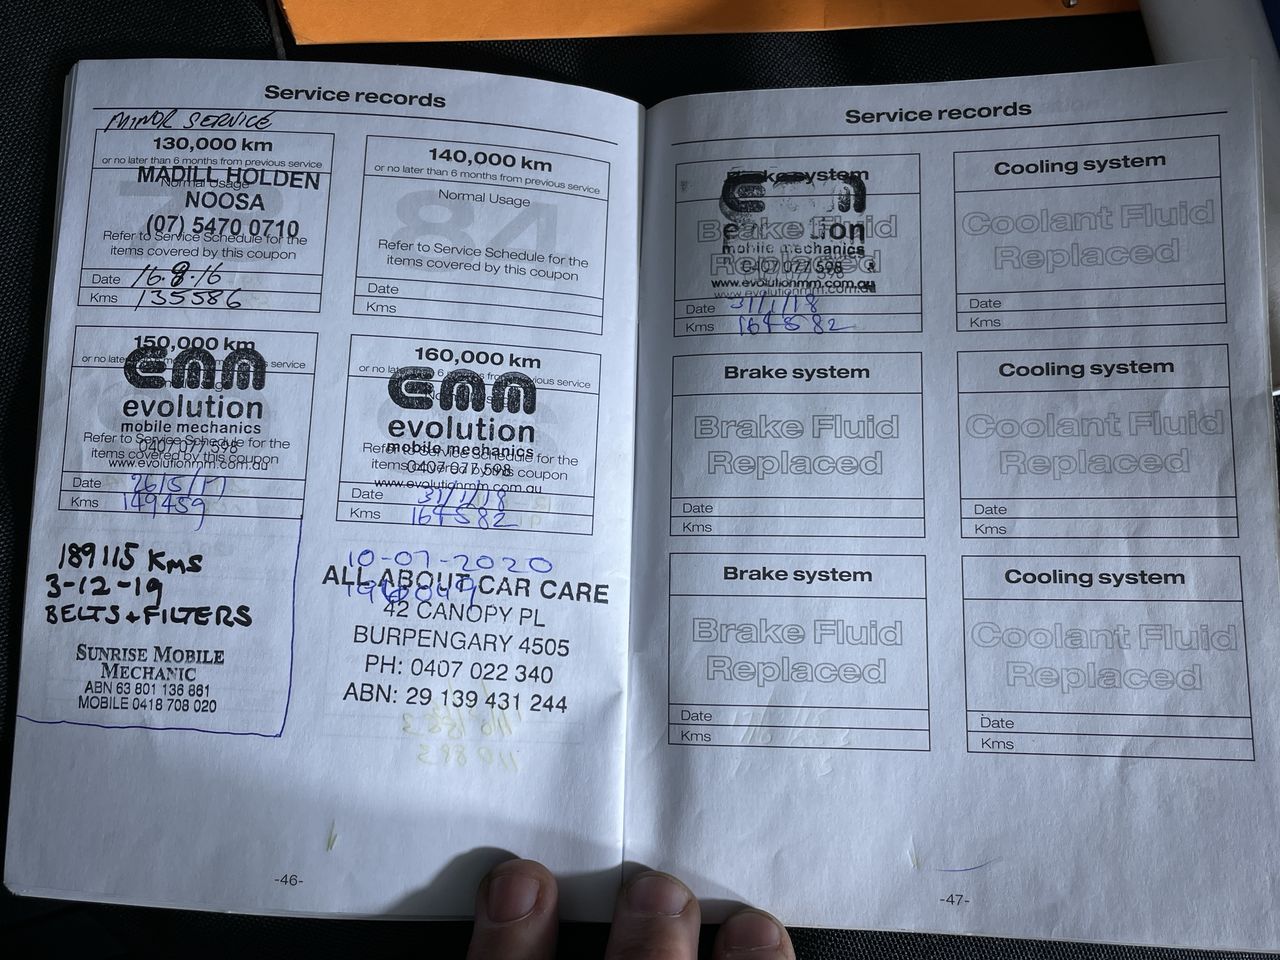 Service records
MINOR SERVICE
130,000 km
or no later than 6 months from previous service
Normal Usage
MADILL HOLDEN
NOOSA
(07) 5470 0710
Refer to Service Schedule for the
items covered by this coupon
Date 16.8.16
Kms 135586
140,000 km
or no later than 6 months from previous service
Normal Usage
Refer to Service Schedule for the
items covered by this coupon
Date
Kms
150,000 km
or no late service
emm
evolution
mobile mechanics
Refer to Service Schedule for the
0407 077 598
items covered by this coupon
www.evolutionmm.com.au
Date 26/5/17
Kms 149459
160,000 km
or no late 6 months from previous service
emm
evolution
mobile mechanics
Refer to Service Schedule for the
0407 077 598
items covered by this coupon
www.evolutionmm.com.au
Date 31/1/18
Kms 164582
189115 Kms
3-12-19
BELTS + FILTERS
SUNRISE MOBILE
MECHANIC
ABN 63 801 136 861
MOBILE 0418 708 020
10-07-2020
ALL ABOUT CAR CARE
42 CANOPY PL
BURPENGARY 4505
PH: 0407 022 340
ABN: 29 139 431 244
-46-
Service records
Brake system
Brake Fluid
Replaced
mobile mechanics
0407 077 598
www.evolutionmm.com.au
Date 31/1/18
Kms 164582
Cooling system
Coolant Fluid
Replaced
Date
Kms
Brake system
Brake Fluid
Replaced
Date
Kms
Cooling system
Coolant Fluid
Replaced
Date
Kms
Brake system
Brake Fluid
Replaced
Date
Kms
Cooling system
Coolant Fluid
Replaced
Date
Kms
-47-